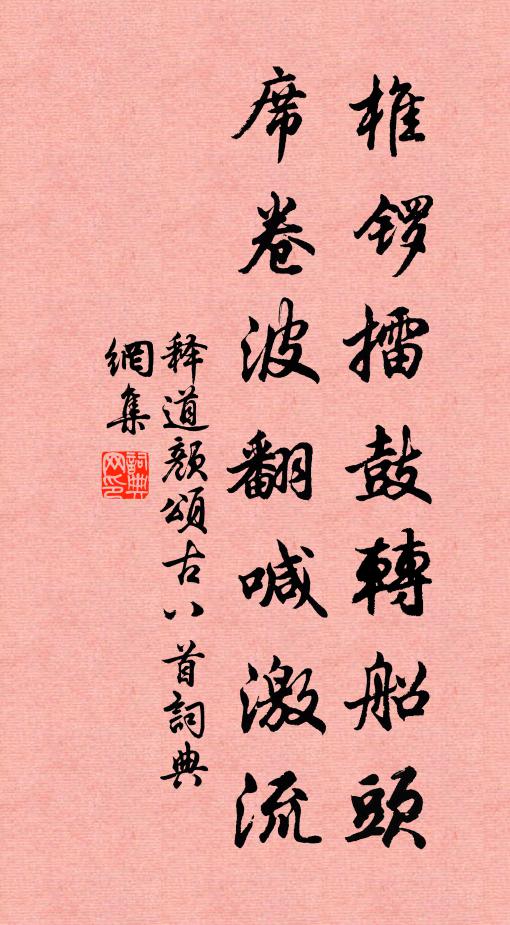 椎锣擂鼓轉船頭
席卷波翻喊激流
释道颜頌古八首詞典
網集
詞典网印